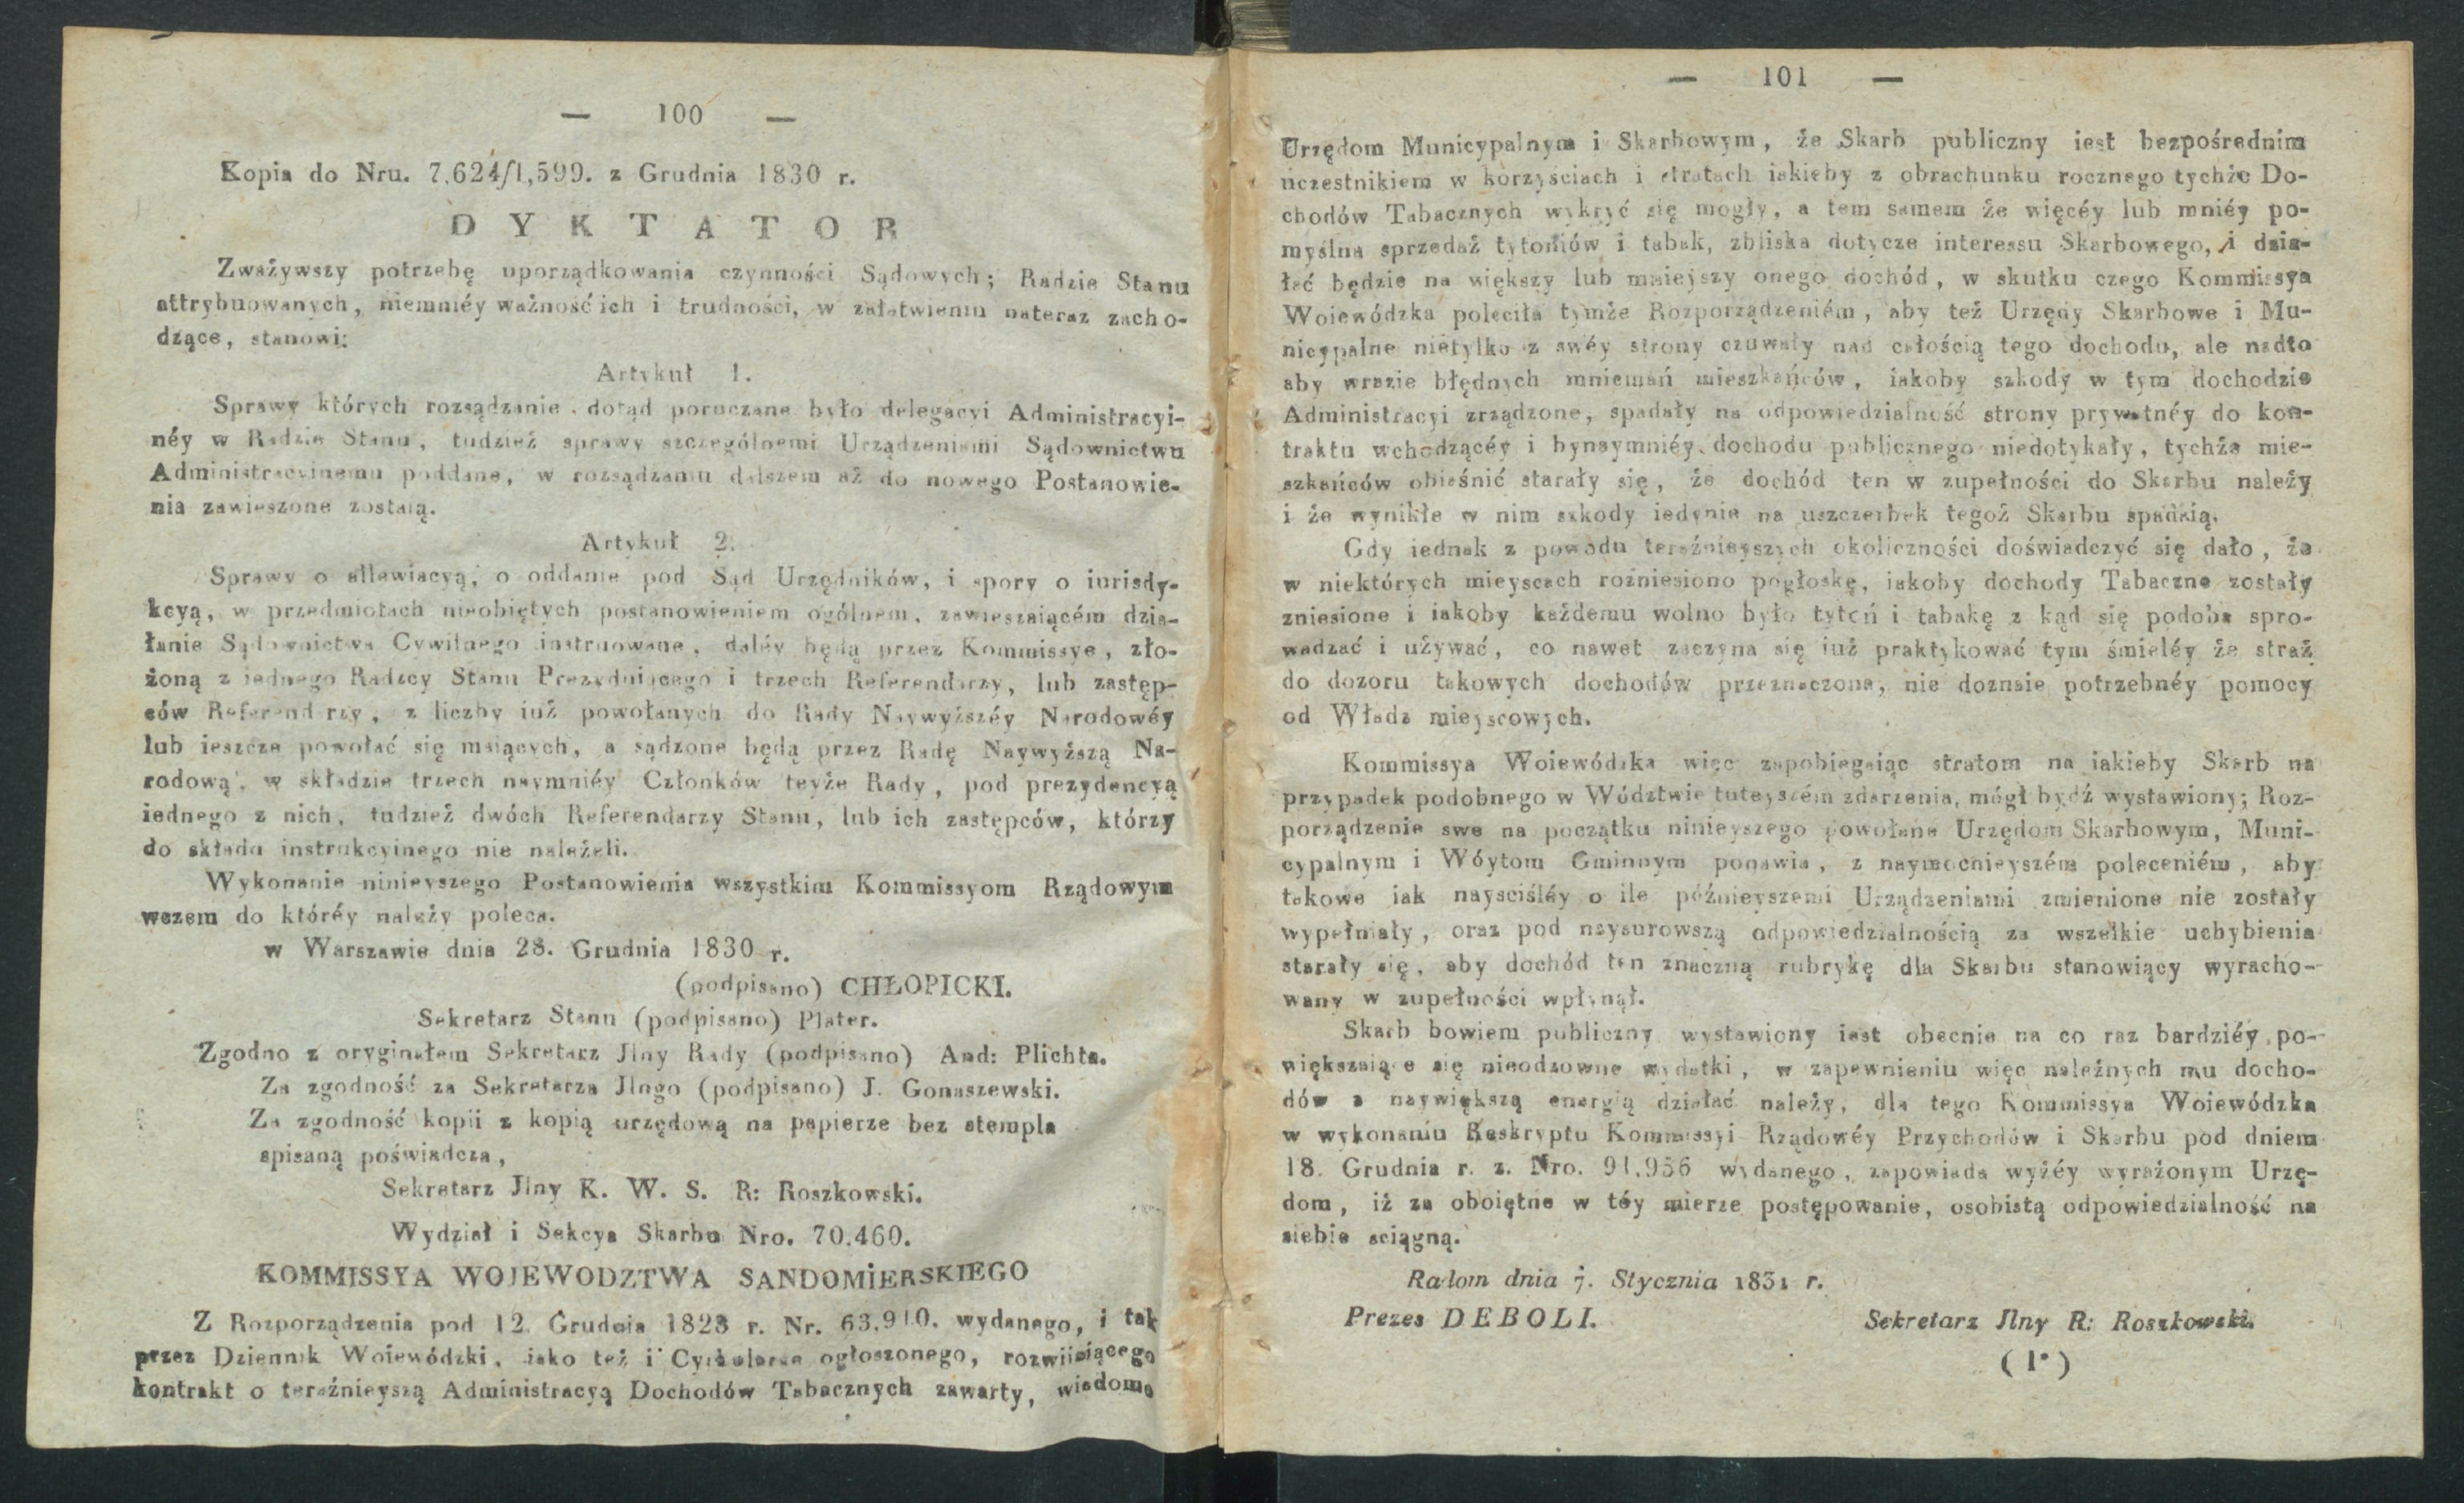 — 100 —
Kopia do Nru. 7,624/1,599. z Grudnia 1830 r.
DYKTATOR
Zważywszy potrzebę uporządkowania czynności Sądowych; Radzie Stanu
attrybuowanych, niemniéy ważność ich i trudności, w załatwieniu nateraz zacho-
dzące, stanowi:
Artykuł 1.
Sprawy których rozsądzanie dotąd poruczane było delegacyi Administracyi-
néy w Radzie Stanu, tudzież sprawy szczególnemi Urządzeniami Sądownictwu
Administracyinemu poddane, w rozsądzaniu dalszem aż do nowego Postanowie-
nia zawieszone zostaią.
Artykuł 2.
Sprawy o allewiacyą, o oddanie pod Sąd Urzędników, i spory o iurisdy-
kcyą, w przedmiotach nieobiętych postanowieniem ogólnem, zawieszaiącém dzia-
łanie Sądownictwa Cywilnego instruowane, daléy będą przez Kommissye, zło-
żoną z iednego Radzcy Stanu Prezyduiącego i trzech Referendarzy, lub zastęp-
ców Referendarzy, z liczby iuż powołanych do Rady Naywyższéy Narodowéy
lub ieszcze powołać się maiących, a sądzone będą przez Radę Naywyższą Na-
rodową, w składzie trzech naymniéy Członków teyże Rady, pod prezydencyą
iednego z nich, tudzież dwóch Referendarzy Stanu, lub ich zastępców, którzy
do składu instrukcyinego nie należeli.
Wykonanie ninieyszego Postanowienia wszystkim Kommissyom Rządowym
wczem do któréy należy poleca.
w Warszawie dnia 28. Grudnia 1830 r.
(podpisano) CHŁOPICKI.
Sekretarz Stanu (podpisano) Plater.
Zgodno z oryginałem Sekretarz Jlny Rady (podpisano) And: Plichta.
Za zgodność za Sekretarza Jlngo (podpisano) J. Gonaszewski.
Za zgodność kopii z kopią urzędową na papierze bez stempla
spisaną poświadcza,
Sekretarz Jlny K. W. S. R: Roszkowski.
Wydział i Sekcya Skarbu Nro. 70.460.
KOMMISSYA WOJEWODZTWA SANDOMIERSKIEGO
Z Rozporządzenia pod 12. Grudnia 1828 r. Nr. 63.910. wydanego, i tak
przez Dziennik Woiewódzki, iako też i Cyrkularze ogłoszonego, rozwiiaiącego
kontrakt o teraźnieyszą Administracyą Dochodów Tabacznych zawarty, wiadomo
— 101 —
Urzędom Municypalnym i Skarbowym, że Skarb publiczny iest bezpośrednim
uczestnikiem w korzyściach i stratach iakieby z obrachunku rocznego tychże Do-
chodów Tabacznych wykryć się mogły, a tem samem że więcéy lub mniéy po-
myślna sprzedaż tytoniów i tabak, zbliska dotycze interessu Skarbowego, i dzia-
łać będzie na większy lub mnieyszy onego dochód, w skutku czego Kommissya
Woiewódzka poleciła tymże Rozporządzeniém, aby też Urzędy Skarbowe i Mu-
nicypalne nietylko z swéy strony czuwały nad całością tego dochodu, ale nadto
aby wrazie błędnych mniemań mieszkańców, iakoby szkody w tym dochodzie
Administracyi zrządzone, spadały na odpowiedzialność strony prywatnéy do kon-
traktu wchodzącéy i bynaymniéy dochodu publicznego niedotykały, tychże mie-
szkańców obiaśnić starały się, że dochód ten w zupełności do Skarbu należy
i że wynikłe w nim szkody iedynie na uszczerbek tegoż Skarbu spadaią.
Gdy iednak z powodu teraźnieyszych okoliczności doświadczyć się dało, że
w niektórych mieyscach rozniesiono pogłoskę, iakoby dochody Tabaczne zostały
zniesione i iakoby każdemu wolno było tytoń i tabakę z kąd się podoba spro-
wadzać i używać, co nawet zaczyna się iuż praktykować tym śmieléy że straż
do dozoru takowych dochodów przeznaczona, nie doznaie potrzebnéy pomocy
od Władz mieyscowych.
Kommissya Woiewódzka więc zapobiegaiąc stratom na iakieby Skarb na
przypadek podobnego w Wództwie tuteyszém zdarzenia, mógł bydź wystawiony; Roz-
porządzenie swe na początku ninieyszego powołane Urzędom Skarbowym, Muni-
cypalnym i Wóytom Gminnym ponawia, z naymocnieyszém poleceniém, aby
takowe iak nayściśléy o ile późnieyszemi Urządzeniami zmienione nie zostały
wypełniały, oraz pod naysurowszą odpowiedzialnością za wszelkie uchybienia
starały się, aby dochód ten znaczną rubrykę dla Skarbu stanowiący wyracho-
wany w zupełności wpłynął.
Skarb bowiem publiczny wystawiony iest obecnie na co raz bardziéy po-
większaiące się nieodzowne wydatki, w zapewnieniu więc należnych mu docho-
dów z naywiększą energią działać należy, dla tego Kommissya Woiewódzka
w wykonaniu Reskryptu Kommissyi Rządowéy Przychodów i Skarbu pod dniem
18. Grudnia r. z. Nro. 91.956 wydanego, zapowiada wyżéy wyrażonym Urzę-
dom, iż za oboiętne w téy mierze postępowanie, osobistą odpowiedzialność na
siebie sciągną.
Radom dnia 7. Stycznia 1831 r.
Prezes DEBOLI. Sekretarz Jlny R: Roszkowski.
(1*)